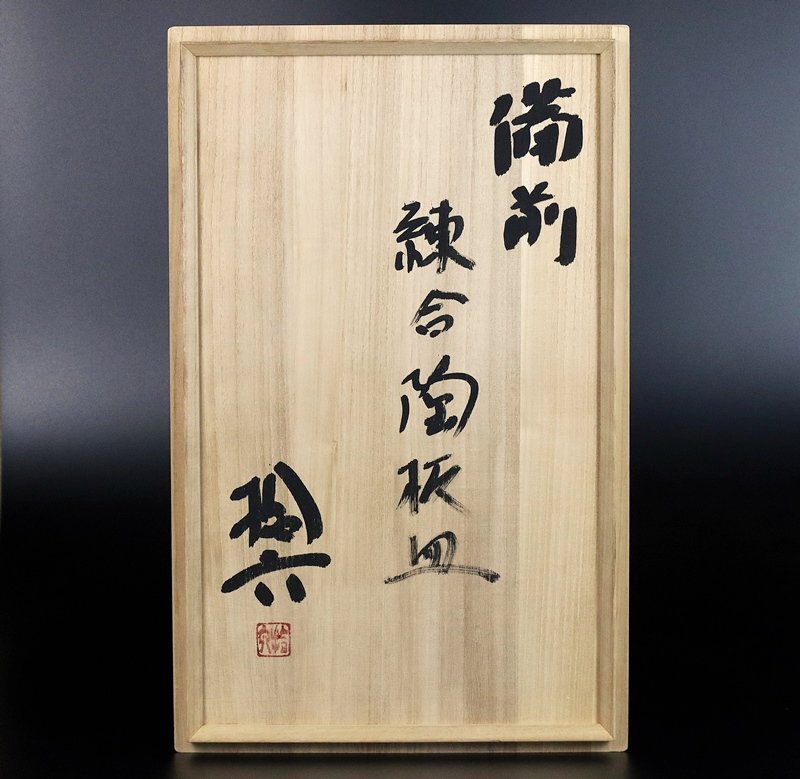 備前
練合陶板皿
拾六